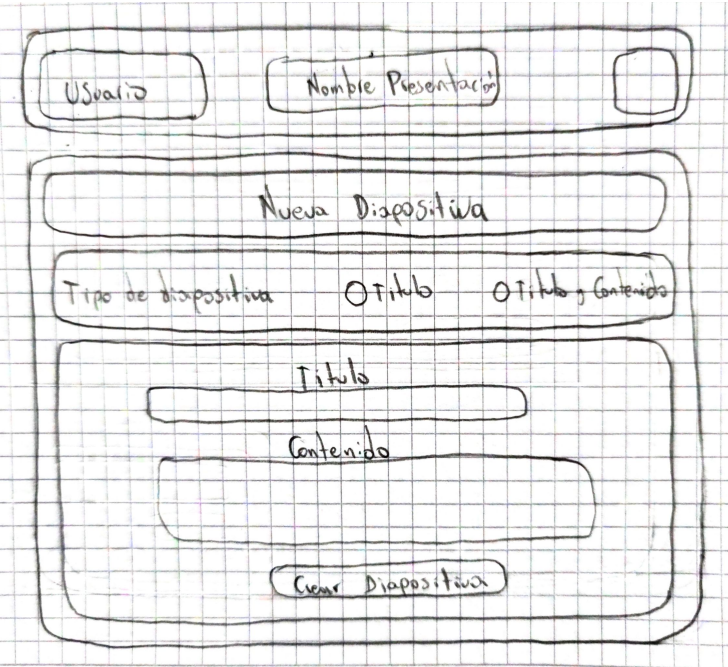 Usuario
Nombre Presentación
Nueva Diapositiva
Tipo de diapositiva
Titulo
Titulo y Contenido
Titulo
Contenido
Crear Diapositiva